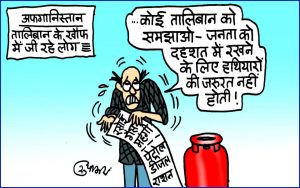 अफगानिस्तान
तालिबान के खौफ
में जी रहे लोग
...कोई तालिबान को
समझाओ- जनता को
दहशत में रखने
के लिए हथियारों
की जरूरत नहीं
होती!
पेट्रोल
डीजल
राशन